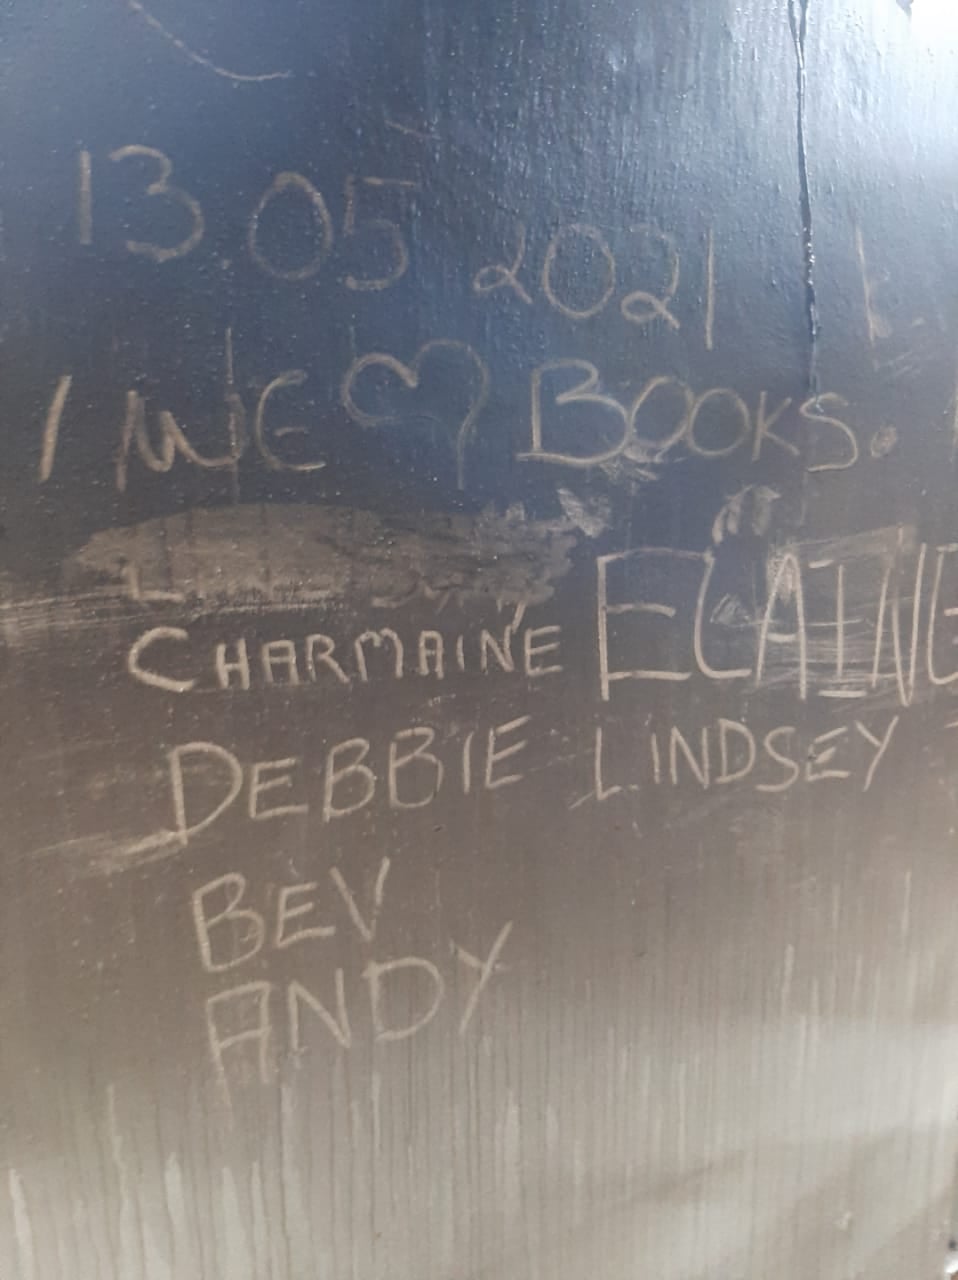 13.05 2021
WE ♡ BOOKS.
CHARMAINE ELAINE
DEBBIE LINDSEY
BEV
ANDY